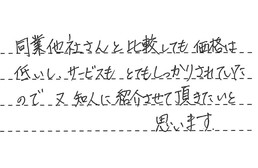 同業他社さんと比較しても価格は
低いし、サービスもとてもしっかりされていた
ので又知人に紹介させて頂きたいと
思います。